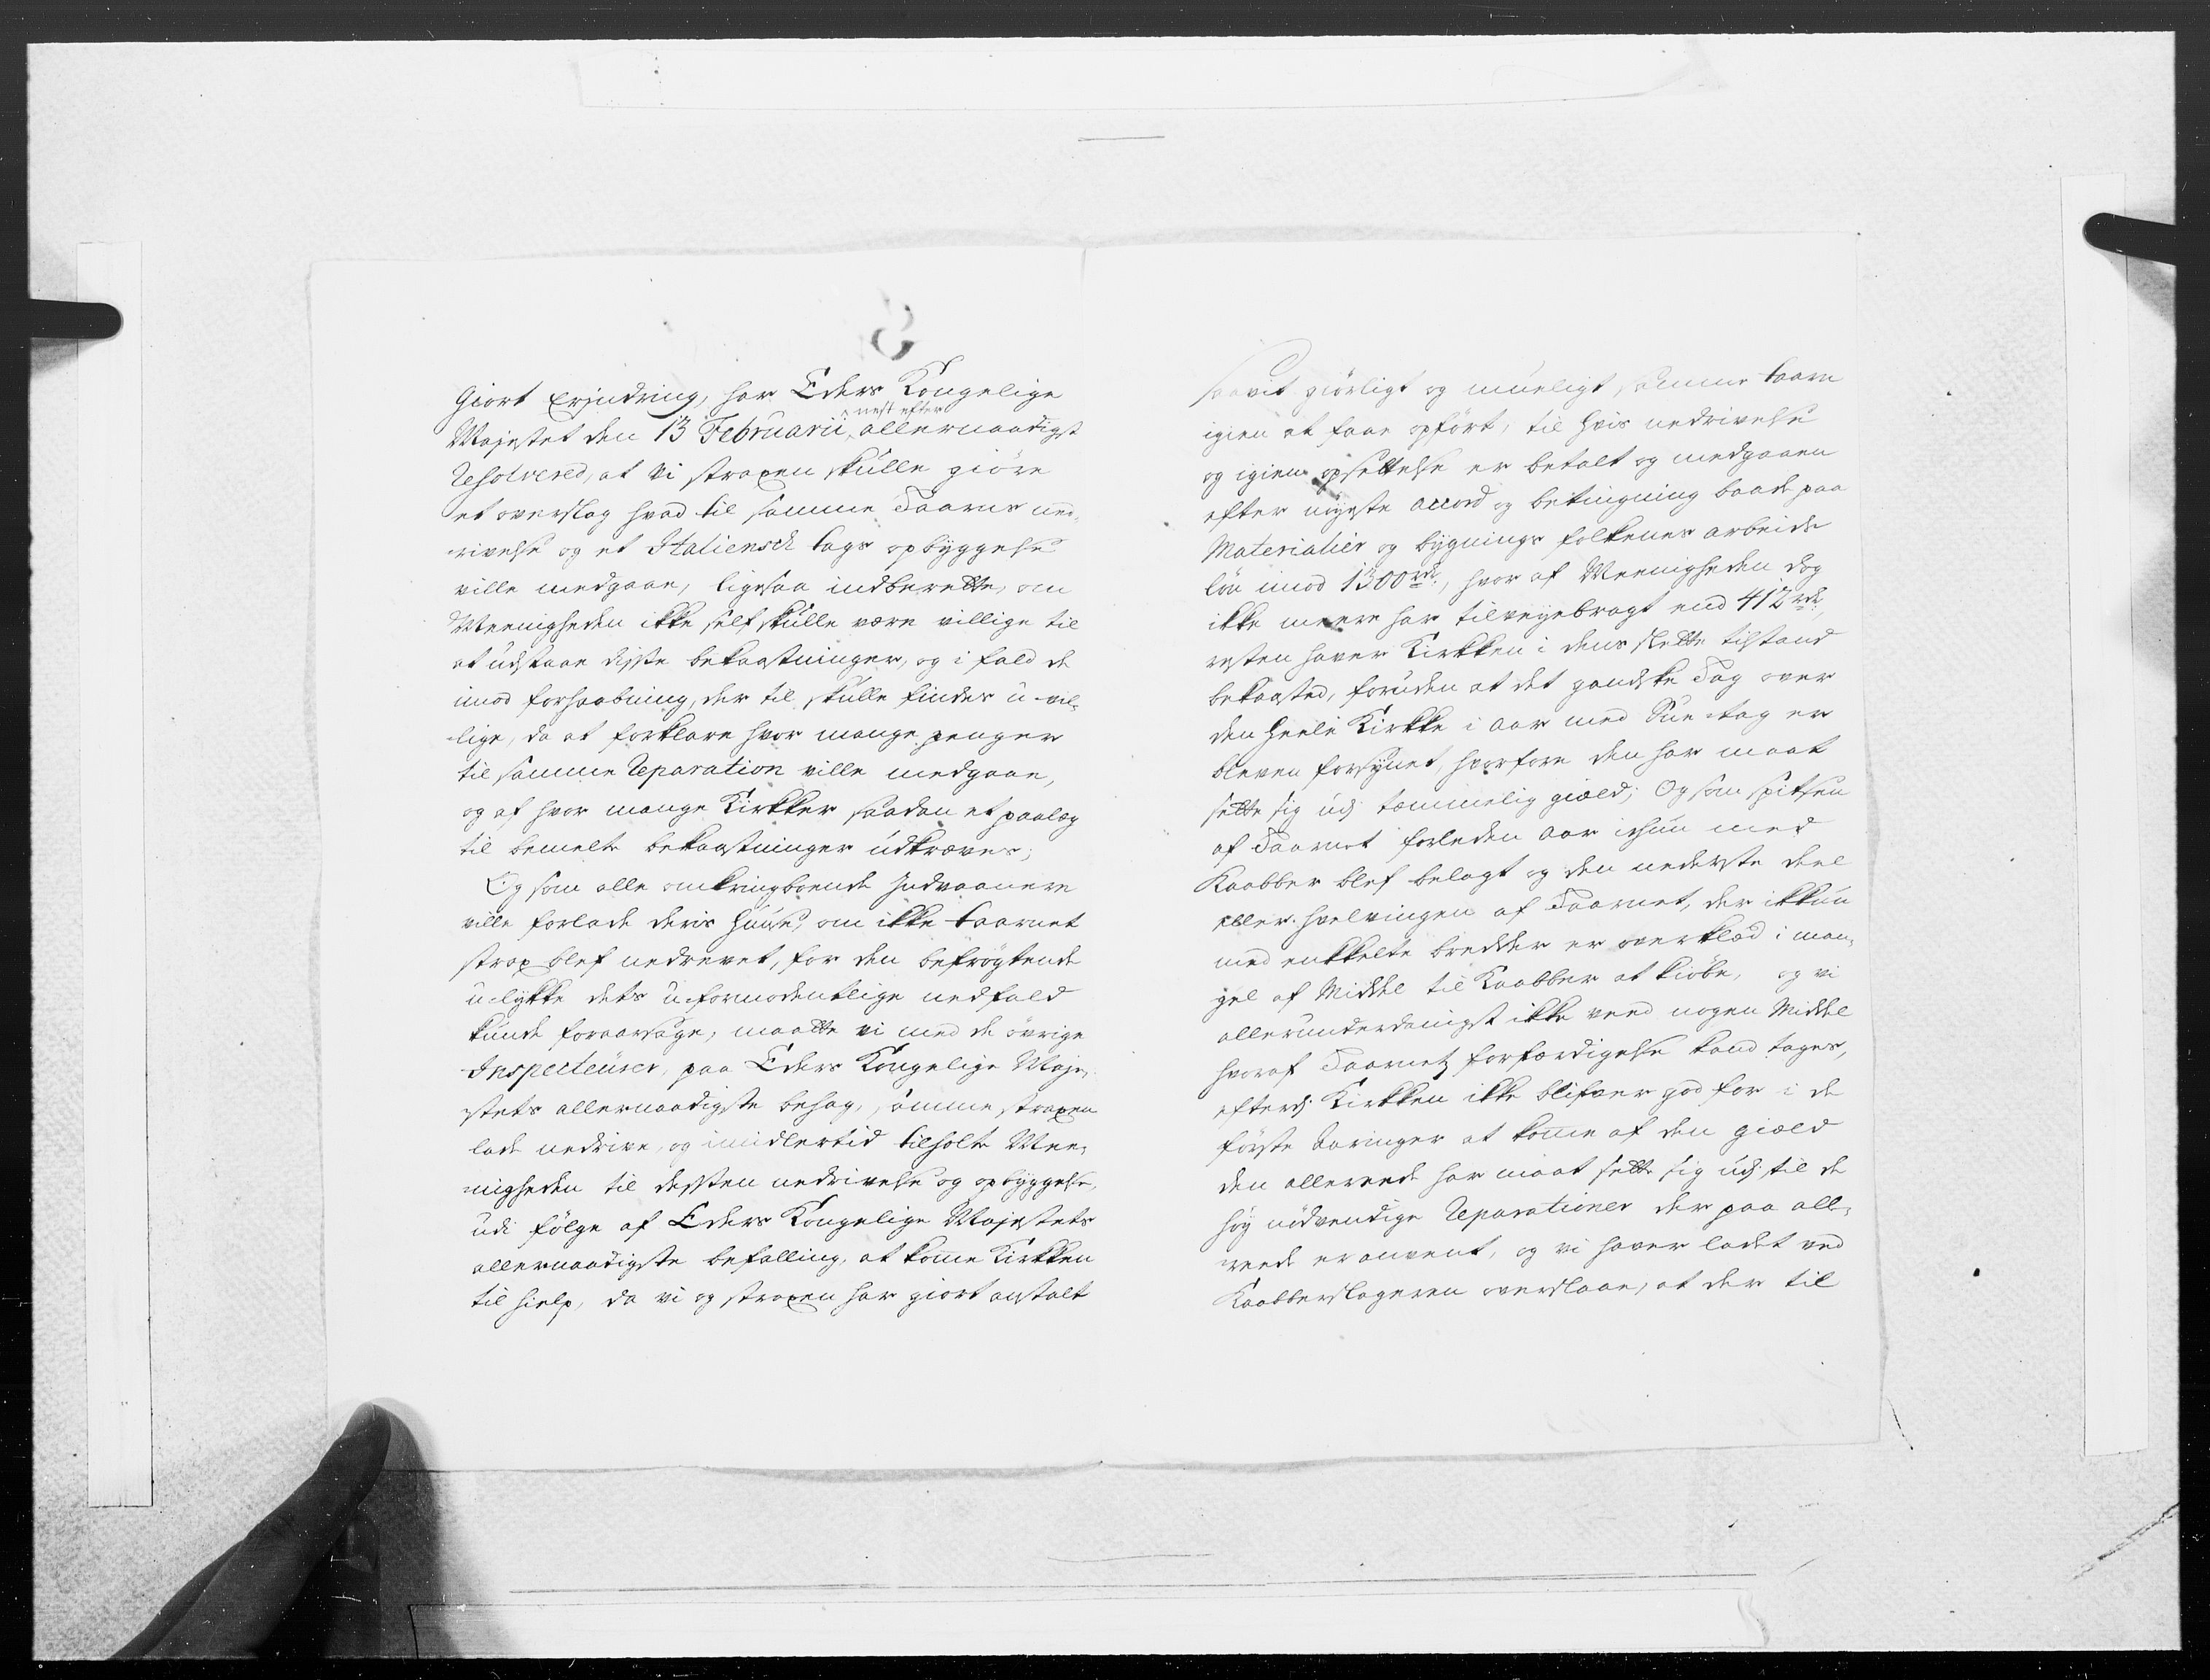 giort Erindring, har Eders Kongelige
nest efter
Majestet den 13 Februarii allernaadigst
Resolvered, at vi straxen skulle giöre
et overslag hvad til samme Taarns ned¬
rivelse og et Italiensch tags opbyggelse
ville medgaae, ligesaa indberette, om
Meenigheden ikke self skulle være villige til
at udstaae disse bekaastninger, og i fald de
imod forhaabning, der til skulle findes u-vil¬
lige, da at forklare hvor mange penger
til samme Reparation ville medgaae,
og af hvor mange Kirkker saadan et paalæg
til bemelte bekaastninger udkræves;
Og som alle omkringboende Indvaanere
ville forlade deris Huuse, om ikke taarnet
strax blef nedrevet, for den befrögtende
u-lykke dets u-formodentlige nedfald
kunde foraarsage, maatte vi med de övrige
Inspecteurer, paa Eders Kongelige Maje¬
stets allernaadigste behag, samme straxen
lade nedrive, og imidlertid tilholte Mee¬
nigheden til dessen nedrivelse og opbyggelse,
udi fölge af Eders Kongelige Majestets
allernaadigste befalling, at komme Kirkken
til hielp, da vi og straxen har giort anstalt
saavit giörligt og mueligt samme taarn
igien at faae opfört, til hvis nedrivelse
og igien opsettelse er betalt og medgaaen
efter nöyeste accord og betingning baade paa
Materialier og bygnings folkenes arbeids
lön imod 1300 rdr, hvor af Meenigheden dog
ikke meere har tilveyebragt end 412 rdr,
resten haver Kirkken i dens slette tilstand
bekaasted, foruden at det gandske Tag over
den heele Kirkke i aar med Sue tag er
bleven forsynet, hvorfore den har maat
sette sig udj temmelig giæld; Og som spitsen
af Taarnet forleden aar ichun med
Kaabber blef belagt og den nederste deel
eller hvelvingen af Taarnet, der ikkun
med enkkelte bredder er overklæd i man¬
gel af Middel til Kaabber at kiöbe, og vi
allerunderdanigst ikke veed nogen Middel
hvoraf Taarnetz forfærdigelse kand tages,
efterdj Kirkken ikke blifver god for i de
förste Aaringer at komme af den giæld
den allereede har maat sette sig udj til de
höy nödvendige Reparationer der paa alle¬
reede er anvent, og vi haver ladet ved
Kaabberslageren overslaae, at der til